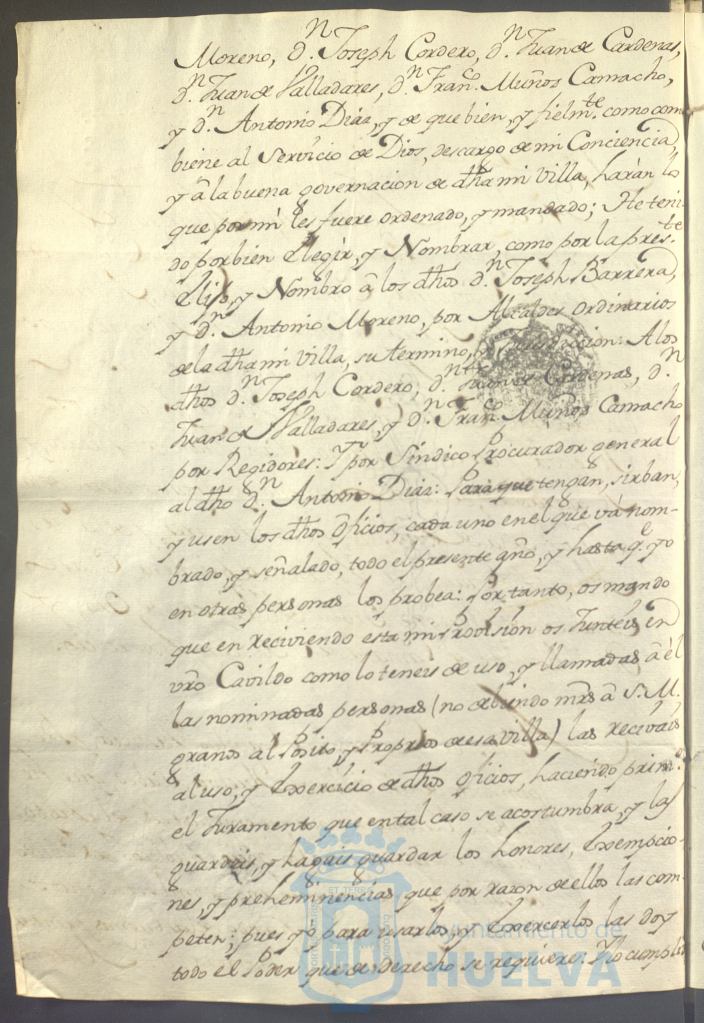 Moreno, d.n Joseph Cordero, d.n Juan de Cardenas,
d.n Juan de Valladares, d.n Fran.co Muños Camacho,
y d.n Antonio Diaz, y de que bien, y fielm.te como com
biene al Servicio de Dios, descargo de mi Conciencia,
y â la buena governacion de dha mi Villa, haràn lo
que por mì les fuere ordenado, y mandado; He teni
do por bien elegir, y Nombrar, como por la pres.te
Elijo, y Nombro â los dhos d.n Joseph Barrera,
y d.n Antonio Moreno, por Alcaldes Ordinarios
de la dha mi Villa, su termino, y Jurisdiccion: A los
dhos d.n Joseph Cordero, d.n Juan de Cardenas, d.n
Juan de Valladares, y d.n Fran.co Muños Camacho
por Regidores: Y por Sindico Procurador general
al dho d.n Antonio Diaz: Para que tengan, sirban,
y usen los dhos oficios, cada uno en el que và nom-
brado, y señalado, todo el presente año, y hasta q.e yo
en otras personas los probea: Por tanto, os mando
que en reciviendo esta mi Provision os Junteis en
vro Cavildo como lo teneis de uso, y llamadas â èl
las nominadas personas (no debiendo mrs â S.M.
granos al Posito, y Proprios de esa villa) las recivais
al uso, y Exercicio de dhos oficios, haciendo prim.o
el Juramento que en tal caso se acostumbra, y las
guardeis, y hagais guardar los honores, Exempcio-
nes, y preheminencias que por razon de ellos las com-
peten; pues yo para usarlos, y Exercerlos las doy
todo el Poder que de derecho se requiere: Y lo cumpli
Ayuntamiento de
HUELVA